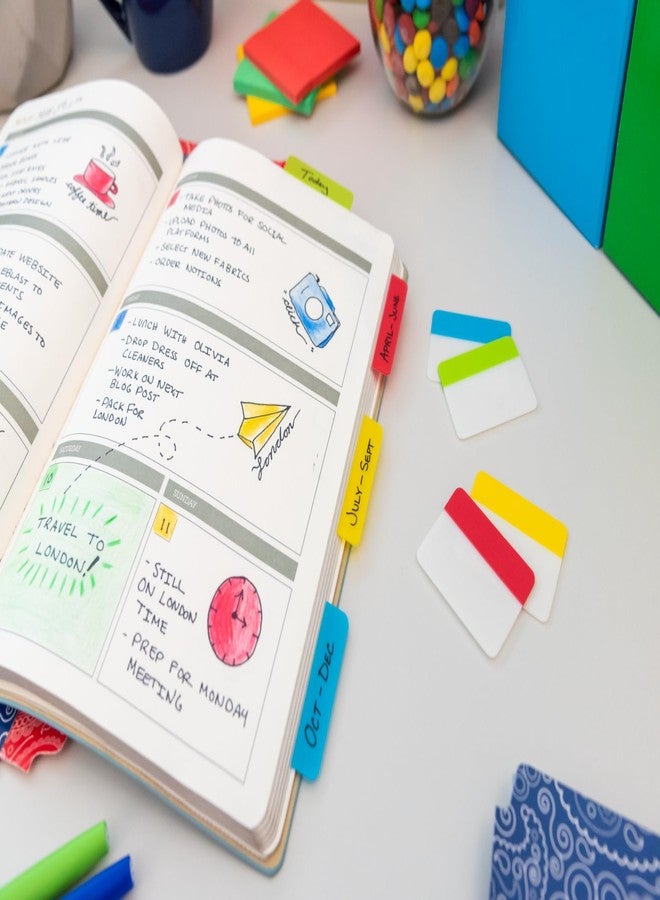 coffee time
ATE WEBSITE
EBLAST TO
ENTS
IMAGES TO
Today
- TAKE PHOTOS FOR SOCIAL
MEDIA
- UPLOAD PHOTOS TO All
PLATFORMS
- SELECT NEW FABRICS
- ORDER NOTIONS
click
- LUNCH WITH OLIVIA
- DROP DRESS OFF AT
CLEANERS
- WORK ON NEXT
BLOG POST
- PACK FOR
LONDON
London
SATURDAY
10
TRAVEL TO
LONDON!
SUNDAY
11
- STILL
ON LONDON
TIME
- PREP FOR MONDAY
MEETING
APRIL - JUNE
JULY - SEPT
OCT - DEC